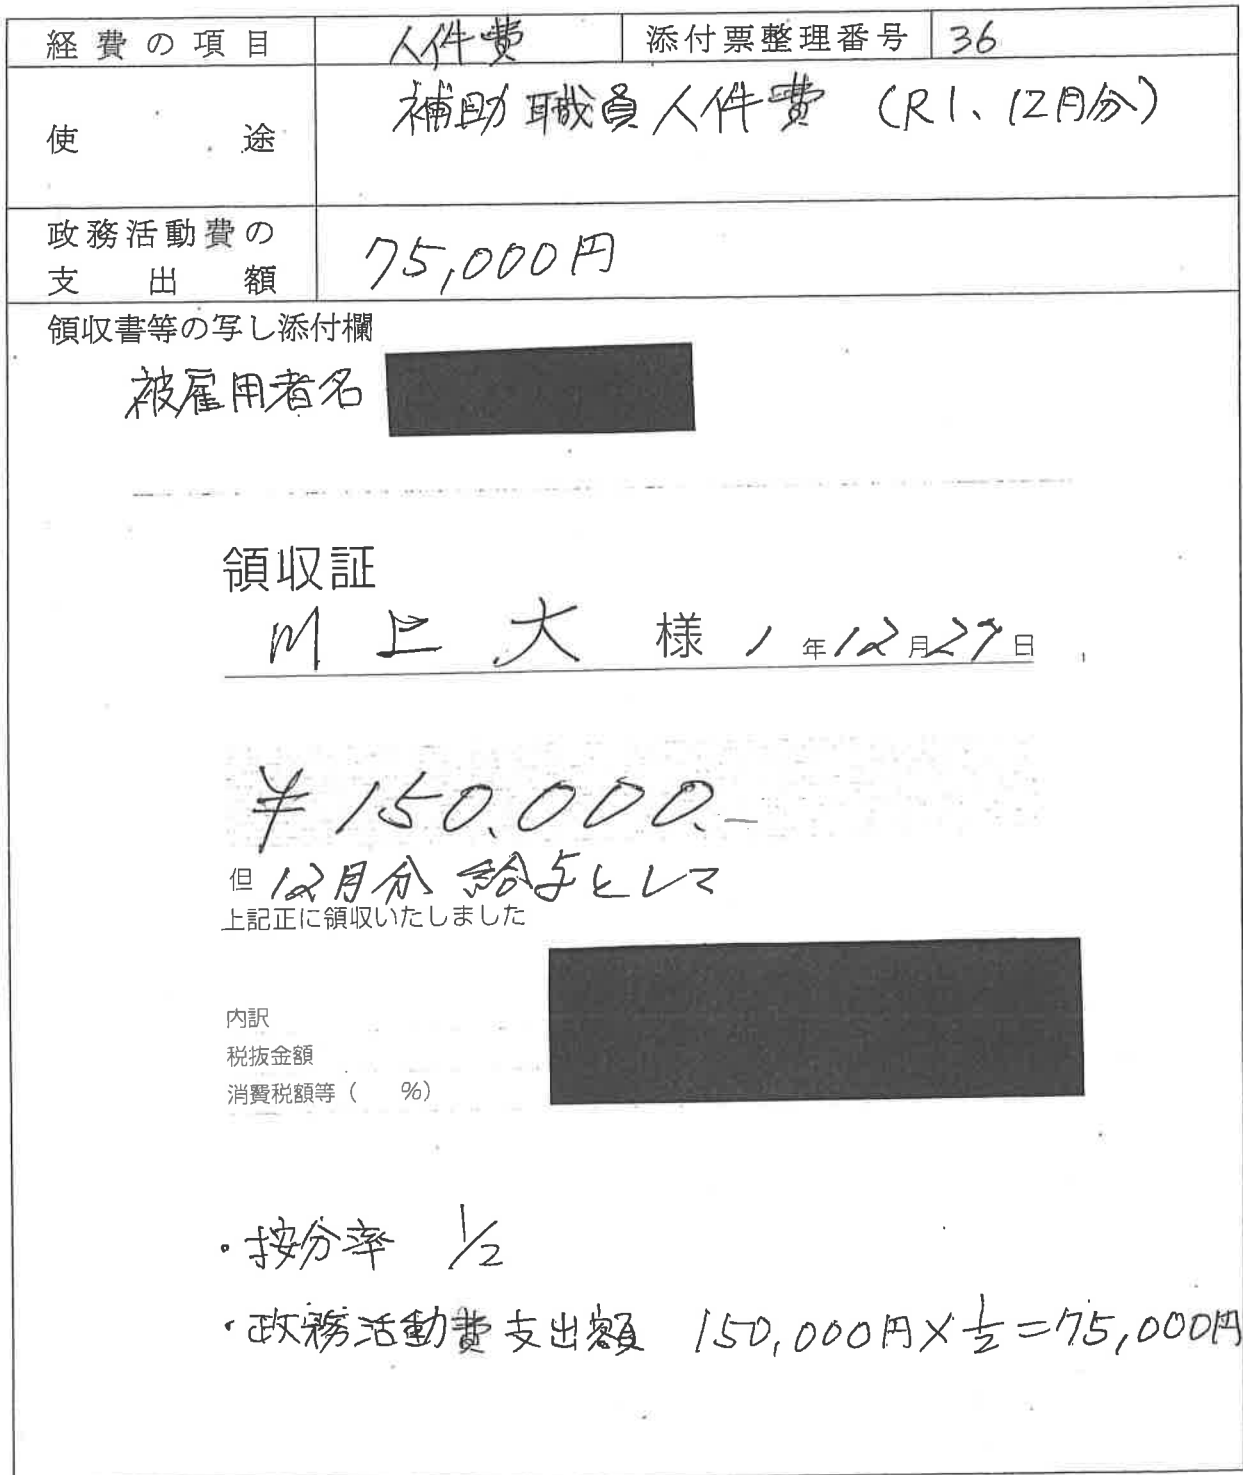 経費の項目 人件費 添付票整理番号 36
使途 補助職員人件費 (R1、12月分)
政務活動費の
支出額 75,000円
領収書等の写し添付欄
被雇用者名
領収証
川上大 様 1年12月27日
¥150,000.-
但 12月分 給与として
上記正に領収いたしました
内訳
税抜金額
消費税額等( %)
・按分率 1/2
・政務活動費支出額 150,000円×1/2=75,000円